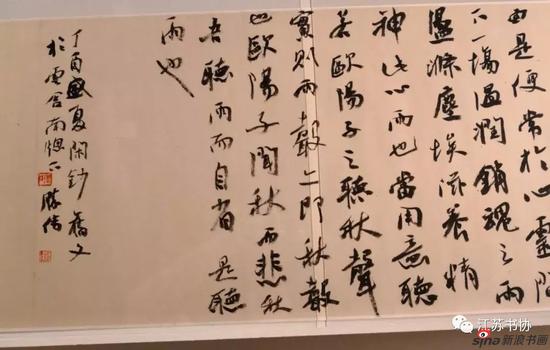 由是便常於心靈間
下一場溫潤銷魂之雨
盪滌塵埃滋養精
神此心雨也當用意聽
若歐陽子之聽秋聲
實則雨聲亦即秋聲
也歐陽子聞秋而悲秋
吾聽雨而自省是聽
雨也
丁酉盛夏閑鈔舊文
於雲舍南牕下
江苏书协
sina新浪书画